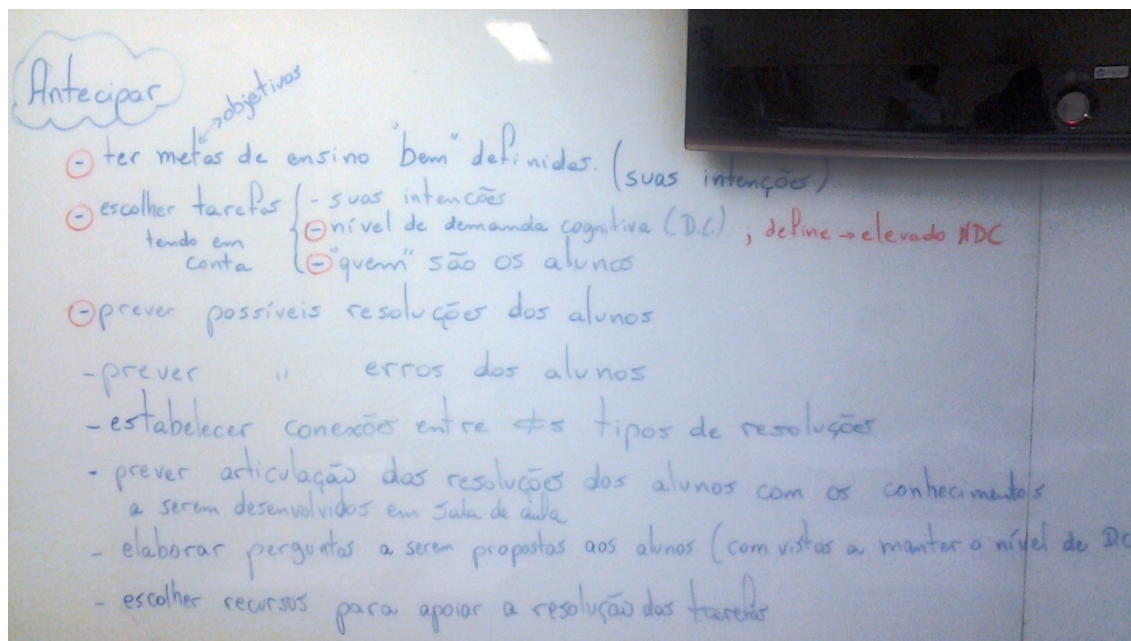 Antecipar
objetivos
- ter metas de ensino "bem" definidas. (suas intenções)
- escolher tarefas tendo em conta
- suas intenções
- nível de demanda cognitiva (DC) ; define → elevado NDC
- "quem" são os alunos
- prever possíveis resoluções dos alunos
- prever " erros dos alunos
- estabelecer conexões entre ≠s tipos de resoluções
- prever articulação das resoluções dos alunos com os conhecimentos
a serem desenvolvidos em sala de aula
- elaborar perguntas a serem propostas aos alunos (com vistas a manter o nível de DC
- escolher recursos para apoiar a resolução das tarefas